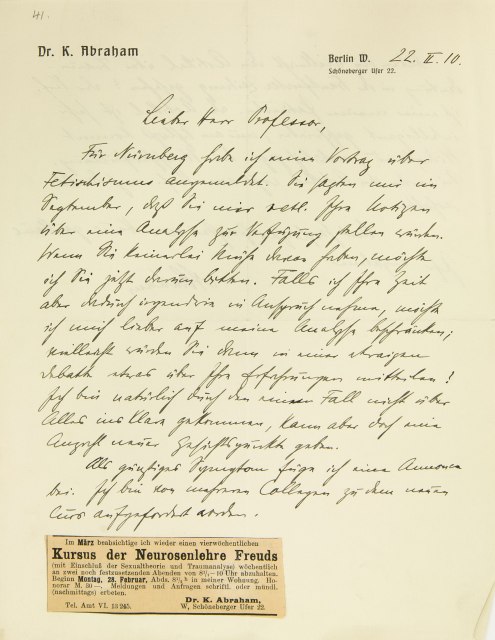 41.
Dr. K. Abraham
Berlin W. 22. II. 10.
Schöneberger Ufer 22.
Lieber Herr Professor,
Für Nürnberg habe ich einen Vortrag über
Fetischismus angemeldet. Sie sagten mir im
September, daß Sie mir evtl. Ihre Notizen
über eine Analyse zur Verfügung stellen würden.
Wenn Sie keinerlei Mühe davon haben, möchte
ich Sie jetzt darum bitten. Falls ich Ihre Zeit
aber dadurch irgendwie in Anspruch nehme, möchte
ich mich lieber auf meine Analyse beschränken;
vielleicht würden Sie dann in einer etwaigen
Debatte etwas über Ihre Erfahrungen mitteilen!
Ich bin natürlich durch den einen Fall nicht über
Alles ins Klare gekommen, kann aber doch eine
Anzahl neuer Gesichtspunkte geben.
Als günstiges Symptom füge ich eine Annonce
bei. Ich bin von mehreren Collegen zu dem neuen
Curs aufgefordert worden.
Im März beabsichtige ich wieder einen vierwöchentlichen
Kursus der Neurosenlehre Freuds
(mit Einschluß der Sexualtheorie und Traumanalyse) wöchentlich
an zwei noch festzusetzenden Abenden von 8½–10 Uhr abzuhalten.
Beginn Montag, 28. Februar, Abds. 8½ h in meiner Wohnung. Ho-
norar M. 30.–. Meldungen und Anfragen schriftl. oder mündl.
(nachmittags) erbeten.
Dr. K. Abraham,
Tel. Amt VI. 13 245. W, Schöneberger Ufer 22.